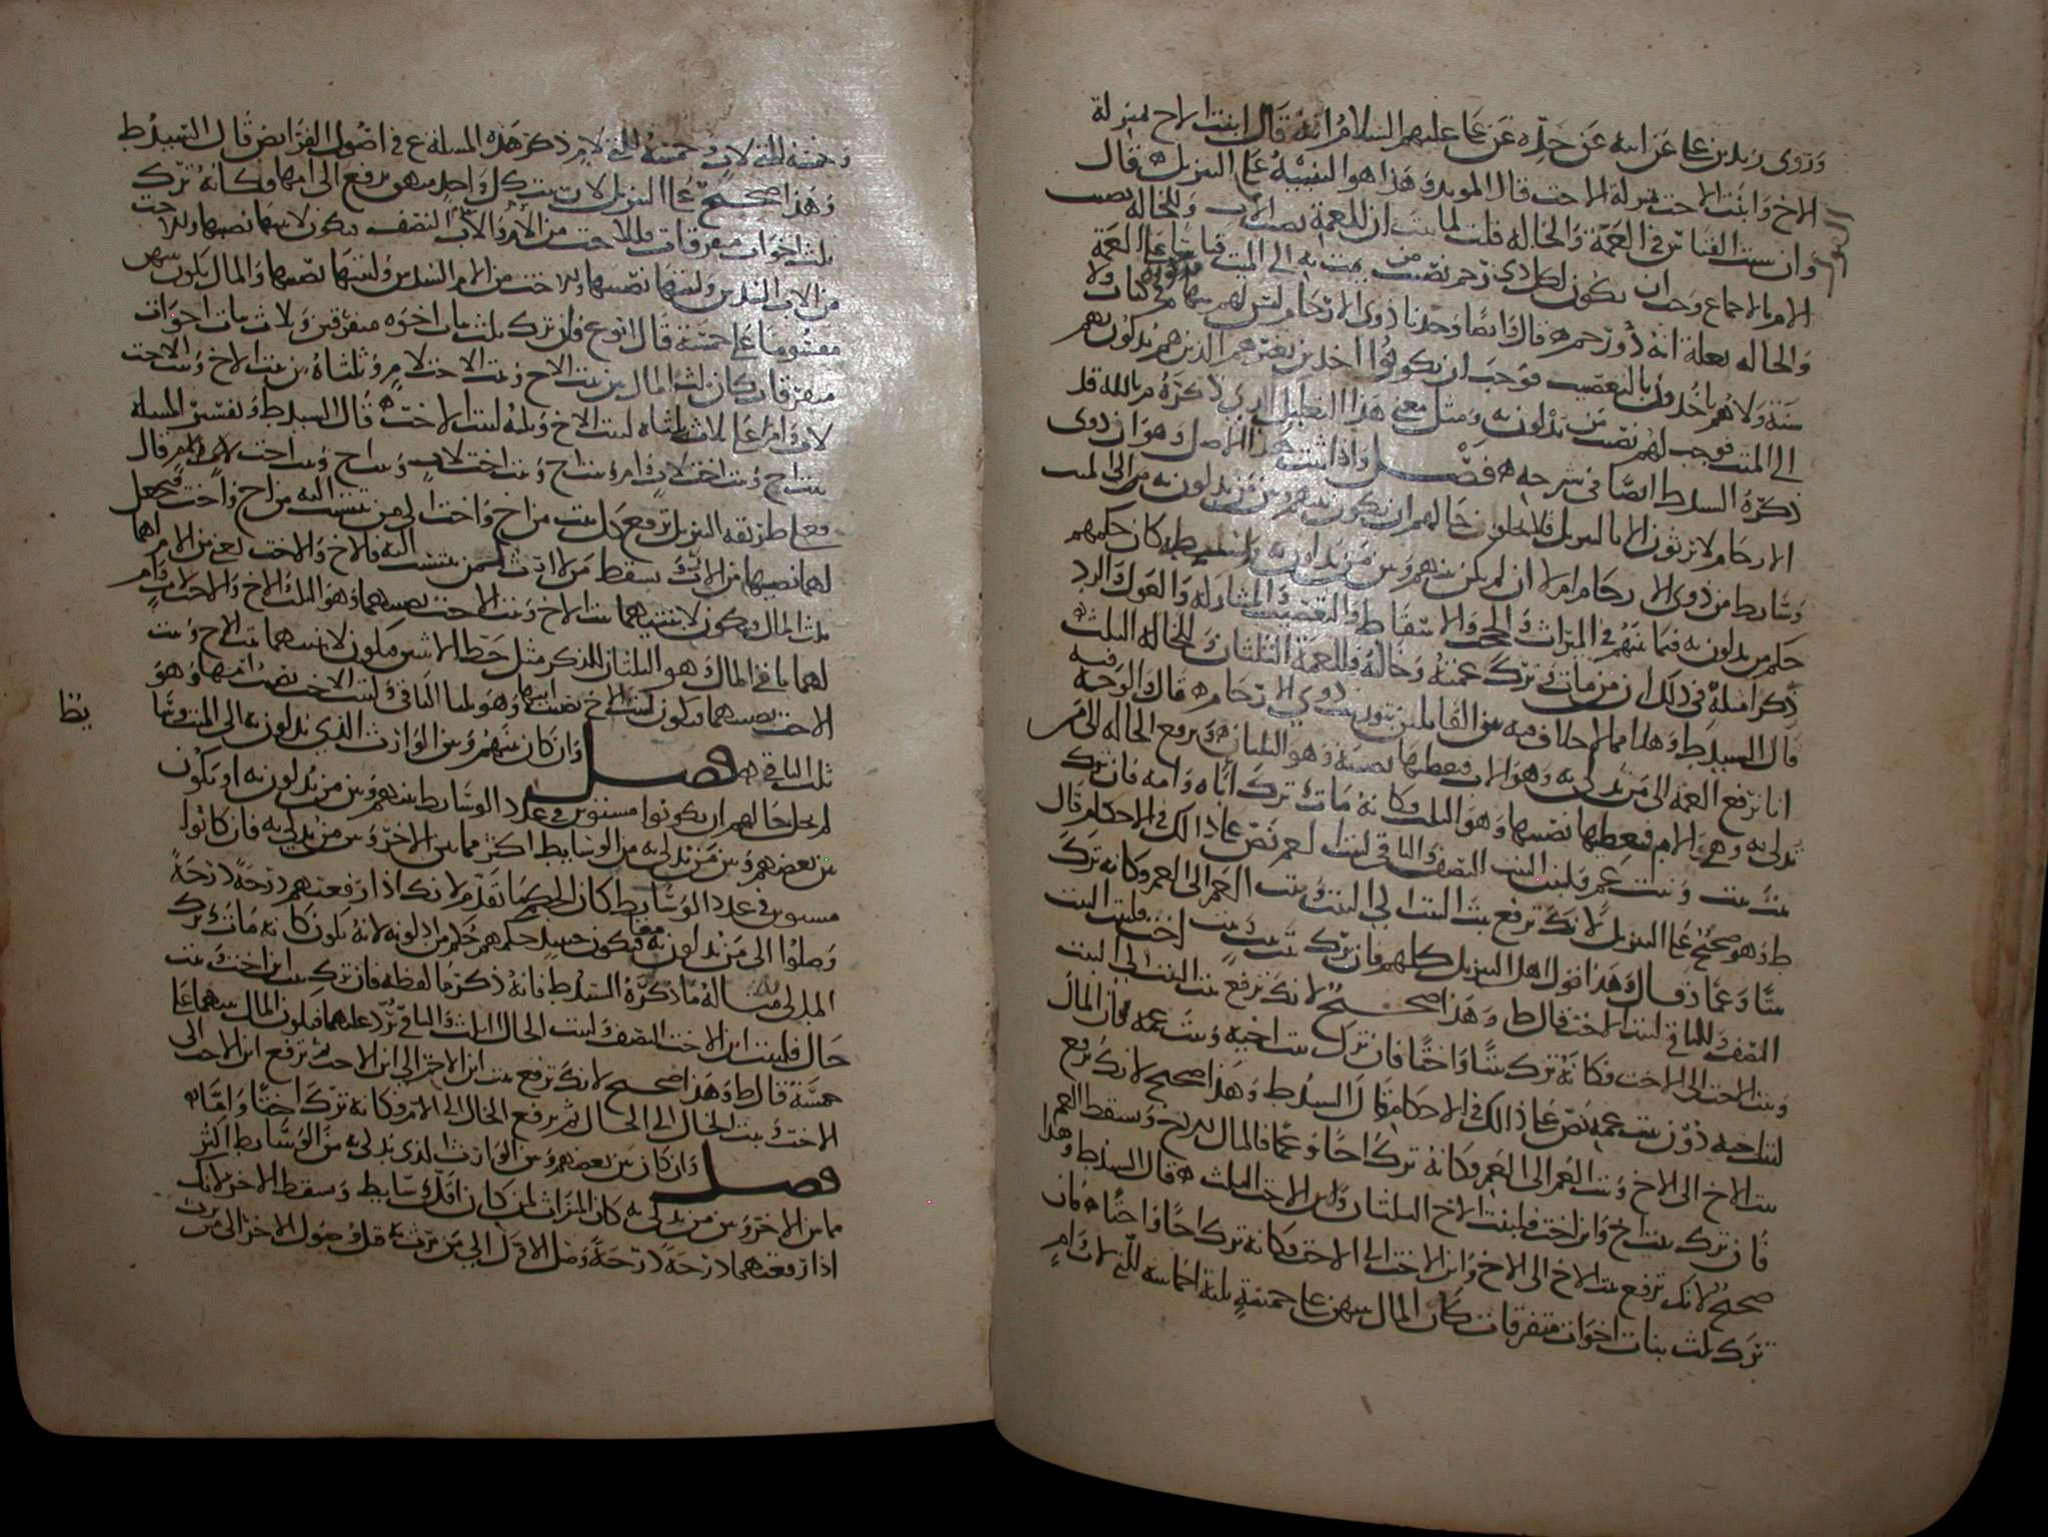 وروى زيد بن علي عن ابيه عن جده عن علي عليهم السلام انه قال ابنت الاخ بمنزلة
الاخ وابنت الاخت بمنزلة الاخت قال المويد وهذا هو التنبيه على التنزيل قال
وان سبب القياس في العمة والخالة قلت لما ثبت ان للعمة نصيب الاب وللخالة نصيب
الام بالاجماع وجب ان يكون لكل ذي رحم نصيب من يمت به الى الميت قياسا على العمة
والخاله بعلة انه ذو رحم قال وايضا وجدنا ذوي الارحام ليس لهم سهام في كتاب ولا
سنة ولا هم ياخذون بالتعصيب فوجب ان يكونوا اخذين بغيرهم الذين هم يدلون بهم
الى الميت فوجب لهم نصيب من يدلون به ومثل معنى هذا التعليل الذي ذكره م بالله قد
ذكره السيد ط ايضا في شرحه فصل واذا ثبت هذا الاصل وهو ان ذوي
الارحام لا يرثون الا بالتنزيل فلا يخلوا حالهم ان يكون بينهم وبين من يدلون به الى الميت
وسايط من ذوي الارحام ام لا ان لم يكن بينهم وبين من يدلون به واسطه كان حكمهم
حكم من يدلون به فيما بينهم في الميراث والحجب والاسقاط والتعصيب والمشاركة والعول والرد
ذكر امثلة في ذلك ان من مات وترك عمته وخالته فللعمة الثلثان وللخالة الثلث
قال السيد ط وهذا مما لا خلاف فيه بين القايلين بتوريث ذوي الارحام قال والوجه فيه
انا نرفع العمة الى من تدلي به وهو الاب فنعطيها نصيبه وهو الثلثان ونرفع الخالة الى من
تدلي به وهي الام فنعطيها نصيبها وهو الثلث وكانه مات وترك اباه وامه فان ترك
بنت بنت وبنت عم فلبنت البنت النصف والباقي لبنت العم نص على ذلك في الاحكام قال
ط وهو صحيح على التنزيل لانك ترفع بنت البنت الى البنت وبنت العم الى العم وكانه ترك
بنتا وعما قال وهذا قول اهل التنزيل كلهم فان ترك بنت بنت وبنت اخت فلبنت البنت
النصف والباقي لبنت الاخت قال ط وهذا صحيح لانك ترفع بنت البنت الى البنت
وبنت الاخت الى الاخت وكانه ترك بنتا واختا فان ترك بنت اخيه وبنت عمه فان المال
لبنت اخيه دون بنت عمه نص على ذلك في الاحكام قال السيد ط وهذا صحيح لانك ترفع
بنت الاخ الى الاخ وبنت العم الى العم وكانه ترك اخا وعما فالمال للاخ ويسقط العم
فان ترك بنت اخ وابن اخت فلبنت الاخ الثلثان ولابن الاخت الثلث قال السيد ط وهذا
صحيح لانك ترفع بنت الاخ الى الاخ وابن الاخت الى الاخت وكانه ترك اخا واختا فان
ترك ثلث بنات اخوات متفرقات كان المال بينهن على خمسة ثلثة اخماسه للتي لاب وام
وخمسه للتي لاب وخمسه للتي لام ذكر هذه المسلة ع في اصول الفرايض قال السيد ط
وهذا صحيح على التنزيل لان بنت كل واحد منهن ترفع الى امها وكانه ترك
ثلث اخوات متفرقات فللاخت من الام والاب النصف فيكون لابنتها نصيبها وللاخت
من الاب السدس ولبنتها نصيبها وللاخت من الام السدس ولبنتها نصيبها والمال يكون بينهن
مقسوما على خمسة قال ابو ع فان ترك ثلث بنات اخوه متفرقين وثلاث بنات اخوات
متفرقات كان ثلث المال بين بنت الاخ وبنت الاخت لام وثلثاه بين بنت الاخ وبنت الاخت
لاب وام على ثلاثة ثلثاه لبنت الاخ وثلثه لبنت الاخت قال السيد ط وتفسير المسلة
بنت اخ وبنت اخت لاب وام وبنت اخ وبنت اخت لاب وبنت اخ وبنت اخت لام قال
فعلى طريقه التنزيل ترفع كل بنت من اخ واخت الى من تنتسب اليه من اخ واخت فتجعل
لهما نصيبهما من الارث ويسقط من لا ارث له ممن ينتسب اليه فالاخ والاخت اعني من الام لهما
ثلث المال ويكون لابنتيهما بنت الاخ وبنت الاخت نصيبهما وهو الثلث والاخ والاخت لاب وام
لهما باقي المال وهو الثلثان للذكر مثل حظ الانثيين فيكون لابنتيهما بنت الاخ وبنت
الاخت نصيبهما فيكون لبنت الاخ نصيب ابيها وهو ثلثا الباقي ولبنت الاخت نصيب امها وهو
ثلث الباقي فصل وان كان بينهم وبين الوارث الذي يدلون به الى الميت وسايط
لم يخل حالهم ان يكونوا مستوين في عدد الوسايط بينهم وبين من يدلون به او يكون
بين بعضهم وبين من يدلي به من الوسايط اكثر مما بين الاخر وبين من يدلي به فان كانوا
مستوين في عدد الوسايط كان الحكم كما تقدم لانك اذا رفعتهم درجة درجة
وصلوا الى من يدلون به معا فيكون حينيذ حكمهم حكم من ادلو به لانه يكون كانه مات وترك
المدلى به مثاله ما ذكره السيد ط فانه ذكر ما لفظه فان ترك بنت ابن اخت وبنت
خال فلبنت ابن الاخت النصف ولبنت الخال الثلث والباقي يرد عليهما فيكون المال بينهما على
خمسة قال ط وهذا صحيح لانك ترفع بنت ابن الاخت الى ابن الاخت ثم ترفع ابن الاخت الى
الاخت وبنت الخال الى الخال ثم يرفع الخال الى الام وكانه ترك اختا واما
فصل وان كان بين بعضهم وبين الوارث الذي يدلي به من الوسايط اكثر
مما بين الاخر وبين من يدلي به كان الميراث لمن كان اقل وسايط ويسقط الاخر لانك
اذا رفعتهما درجة درجة وصل الاقرب الى من يرث به قبل وصول الاخر الى من يرث